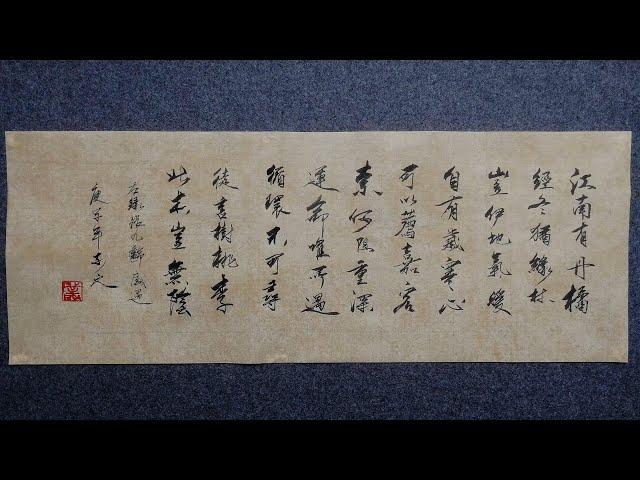 江南有丹橘
經冬猶綠林
豈伊地氣暖
自有歲寒心
可以薦嘉客
奈何阻重深
運命唯所遇
循環不可尋
徒言樹桃李
此木豈無蔭
右錄張九齡感遇
庚子年